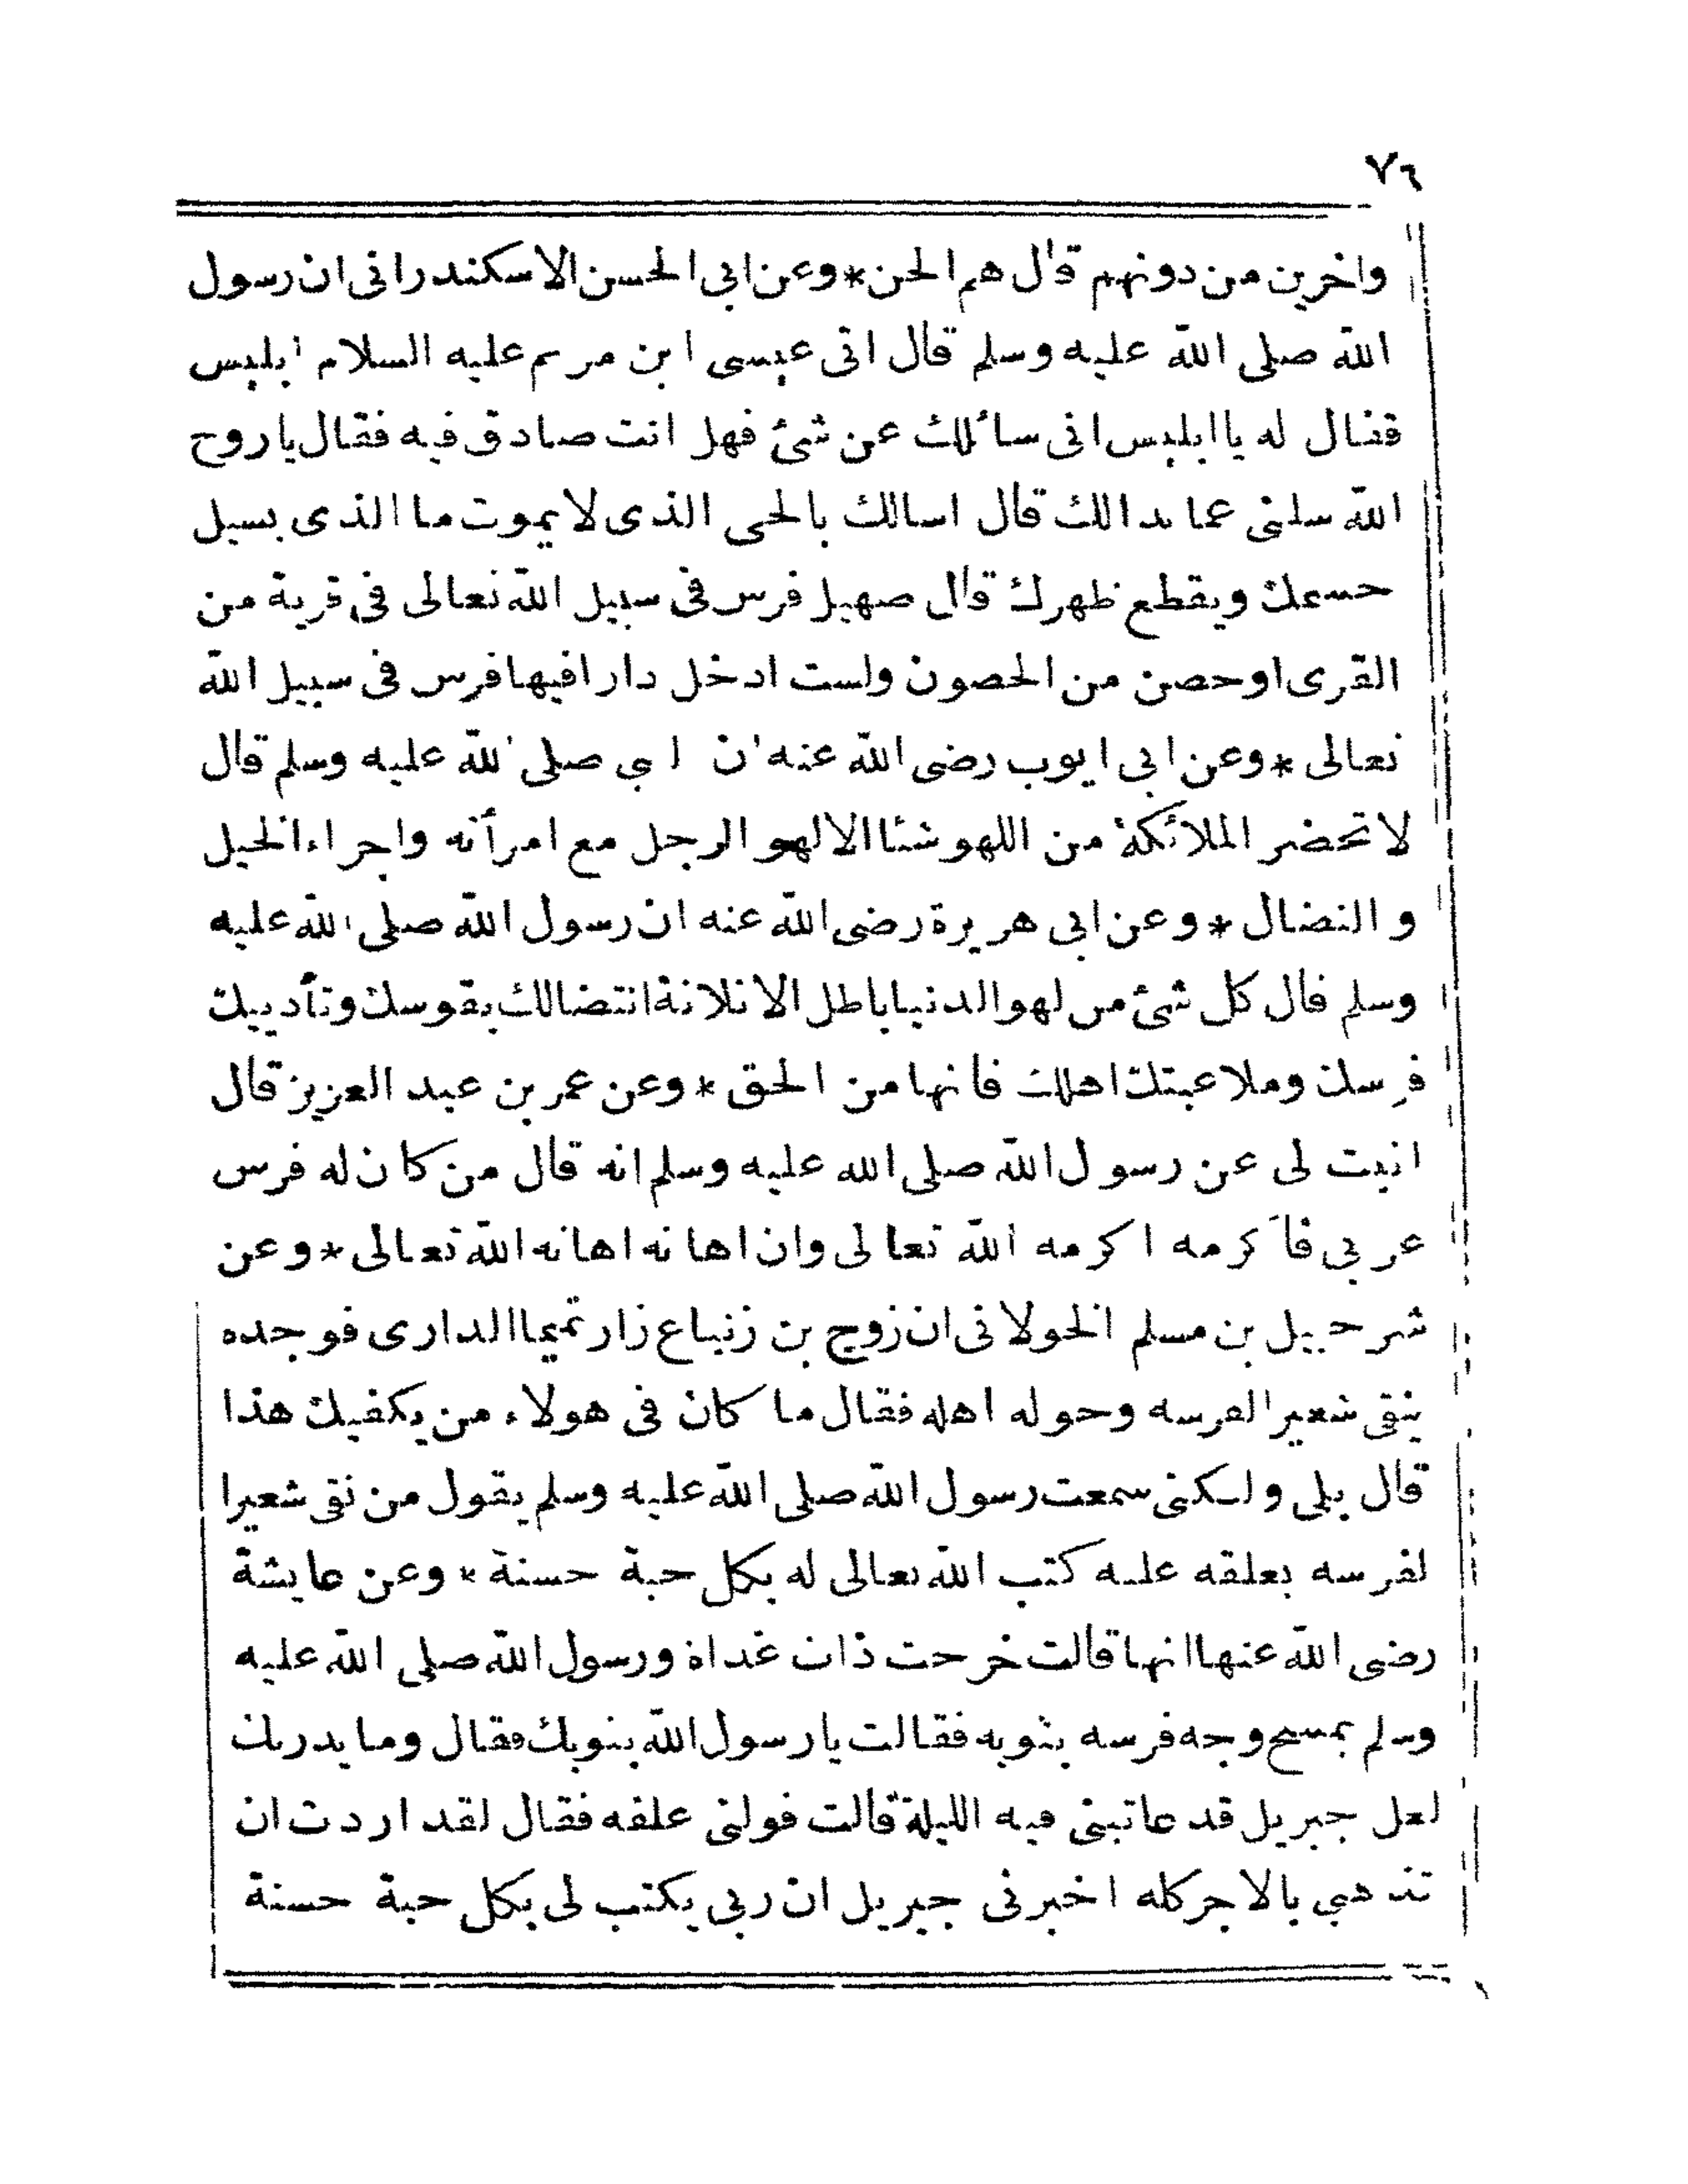 ٧٦
واخرين من دونهم قال هم الجن * وعن ابي الحسن الاسكندراني ان رسول
الله صلى الله عليه وسلم قال اتى عيسى ابن مريم عليه السلام ابليس
فقال له يا ابليس انى سائلك عن شئ فهل انت صادق فيه فقال يا روح
الله سلنى عما بدالك قال اسالك بالحى الذى لا يموت ما الذى يسيل
جسمك ويقطع ظهرك قال صهيل فرس فى سبيل الله تعالى فى قرية من
القرى او حصن من الحصون ولست ادخل دارا فيها فرس فى سبيل الله
تعالى * وعن ابى ايوب رضى الله عنه ان النبي صلى الله عليه وسلم قال
لا تحضر الملائكة من اللهو شئا الا لهو الرجل مع امرأته واجراء الخيل
و النضال * وعن ابى هريرة رضى الله عنه ان رسول الله صلى الله عليه
وسلم قال كل شئ من لهو الدنيا باطل الا ثلاثة انتضالك بقوسك وتأديبك
فرسك وملاعبتك اهلك فانها من الحق * وعن عمر بن عبد العزيز قال
اثبت لى عن رسول الله صلى الله عليه وسلم انه قال من كان له فرس
عربى فأكرمه اكرمه الله تعالى وان اهانه اهانه الله تعالى * وعن
شرحبيل بن مسلم الخولانى ان زوج بن زنباع زار تميما الدارى فوجده
ينقى شعيرا لفرسه وحوله اهله فقال ما كان فى هولاء من يكفيك هذا
قال بلى ولكنى سمعت رسول الله صلى الله عليه وسلم يقول من نقى شعيرا
لفرسه يعلقه عليه كتب الله تعالى له بكل حبة حسنة * وعن عايشة
رضى الله عنها انها قالت خرجت ذات غداة ورسول الله صلى الله عليه
وسلم يمسح وجه فرسه بثوبه فقالت يا رسول الله بثوبك فقال وما يدريك
لعل جبريل قد عاتبنى فيه الليلة قالت فولنى علفه فقال لقد اردت ان
تذهبي بالاجر كله اخبرنى جبريل ان ربى يكتب لى بكل حبة حسنة